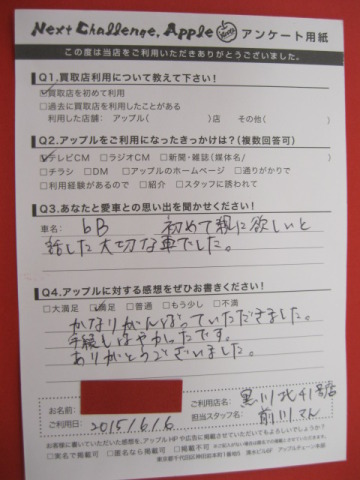 Next Challenge, Apple アンケート用紙
この度は当店をご利用いただきありがとうございました。
Q1.買取店利用について教えて下さい!
☑買取店を初めて利用
□過去に買取店を利用したことがある
利用した店舗: アップル( )店 その他( )
Q2.アップルをご利用になったきっかけは?(複数回答可)
☑テレビCM □ラジオCM □新聞・雑誌(媒体名/ )
□チラシ □DM □アップルのホームページ □通りがかりで
□利用経験があるので □紹介 □スタッフに誘われて
Q3.あなたと愛車との思い出を聞かせください!
車名: bB 初めて親に欲しいと
話した大切な車でした。
Q4.アップルに対する感想をぜひお書きください!
□大満足 ☑満足 □普通 □もう少し □不満
かなりがんばっていただきました。
手続しはやかったです。
ありがとうございました。
お名前:
ご利用日: 2015/6/6
ご利用店名: 黒川北41号店
担当スタッフ名: 前川さん
お客様に書いていただいた感想を、アップルHPや広告に掲載させていただいてもよろしいでしょうか?
□実名で掲載可 □匿名なら掲載可 □掲載不可